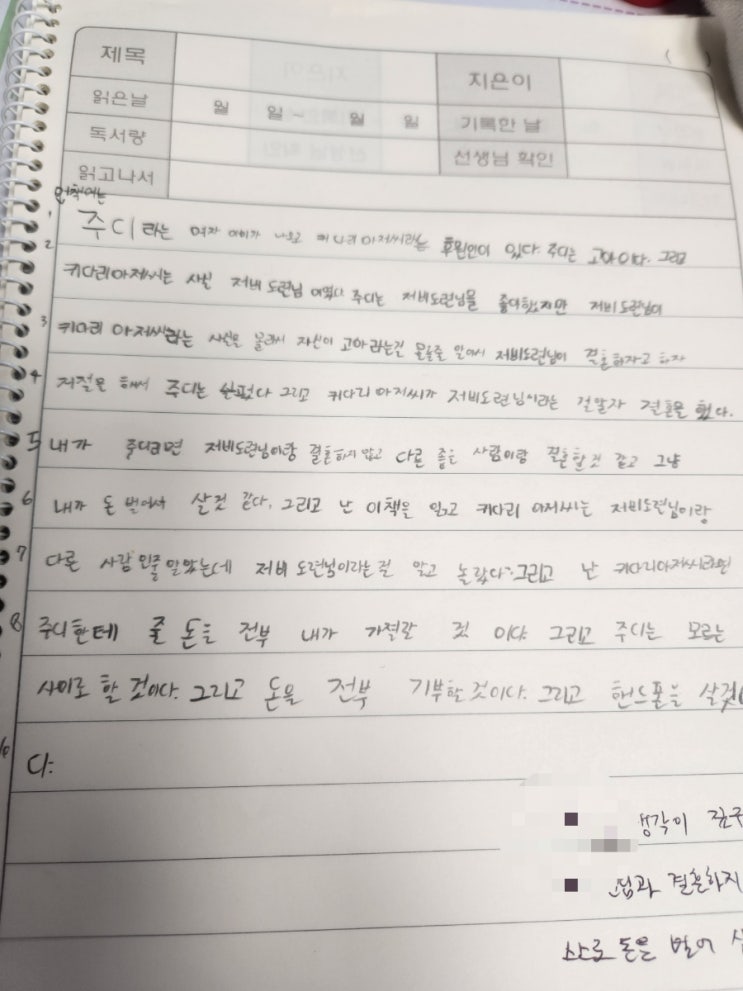 제목 지은이
읽은날 월 일 ~ 월 일 기록한 날
독서량 선생님 확인
읽고나서
이 책에는
1 주디라는 여자 아이가 나오고 키다리아저씨라는 후원인이 있다. 주디는 고아이다. 그리고
2 키다리아저씨는 사실 저비 도련님 이였다 주디는 저비도련님을 좋아했지만 저비도련님이
3 키다리 아저씨라는 사실을 몰라서 자신이 고아라는걸 모를줄 알아서 저비도련님이 결혼하자고 하자
4 거절을 해서 주디는 슬펐다 그리고 키다리 아저씨가 저비도련님이라는 걸알자 결혼을 했다.
5 내가 주디라면 저비도련님이랑 결혼하지 않고 다른 좋은 사람이랑 결혼할것 같고 그냥
6 내가 돈 벌어서 살것 같다. 그리고 난 이책을 읽고 키다리 아저씨는 저비도련님이랑
7 다른 사람인줄 알았는데 저비 도련님이라는걸 알고 놀랐다. 그리고 난 키다리아저씨라면
8 주디한테 줄 돈을 전부 내가 가질랄 것 이다 그리고 주디는 모르는
사이로 할 것이다. 그리고 돈을 전부 기부할 것이다. 그리고 핸드폰을 살것이
10 다.
생각이
결혼하지
스스로 돈을 벌어